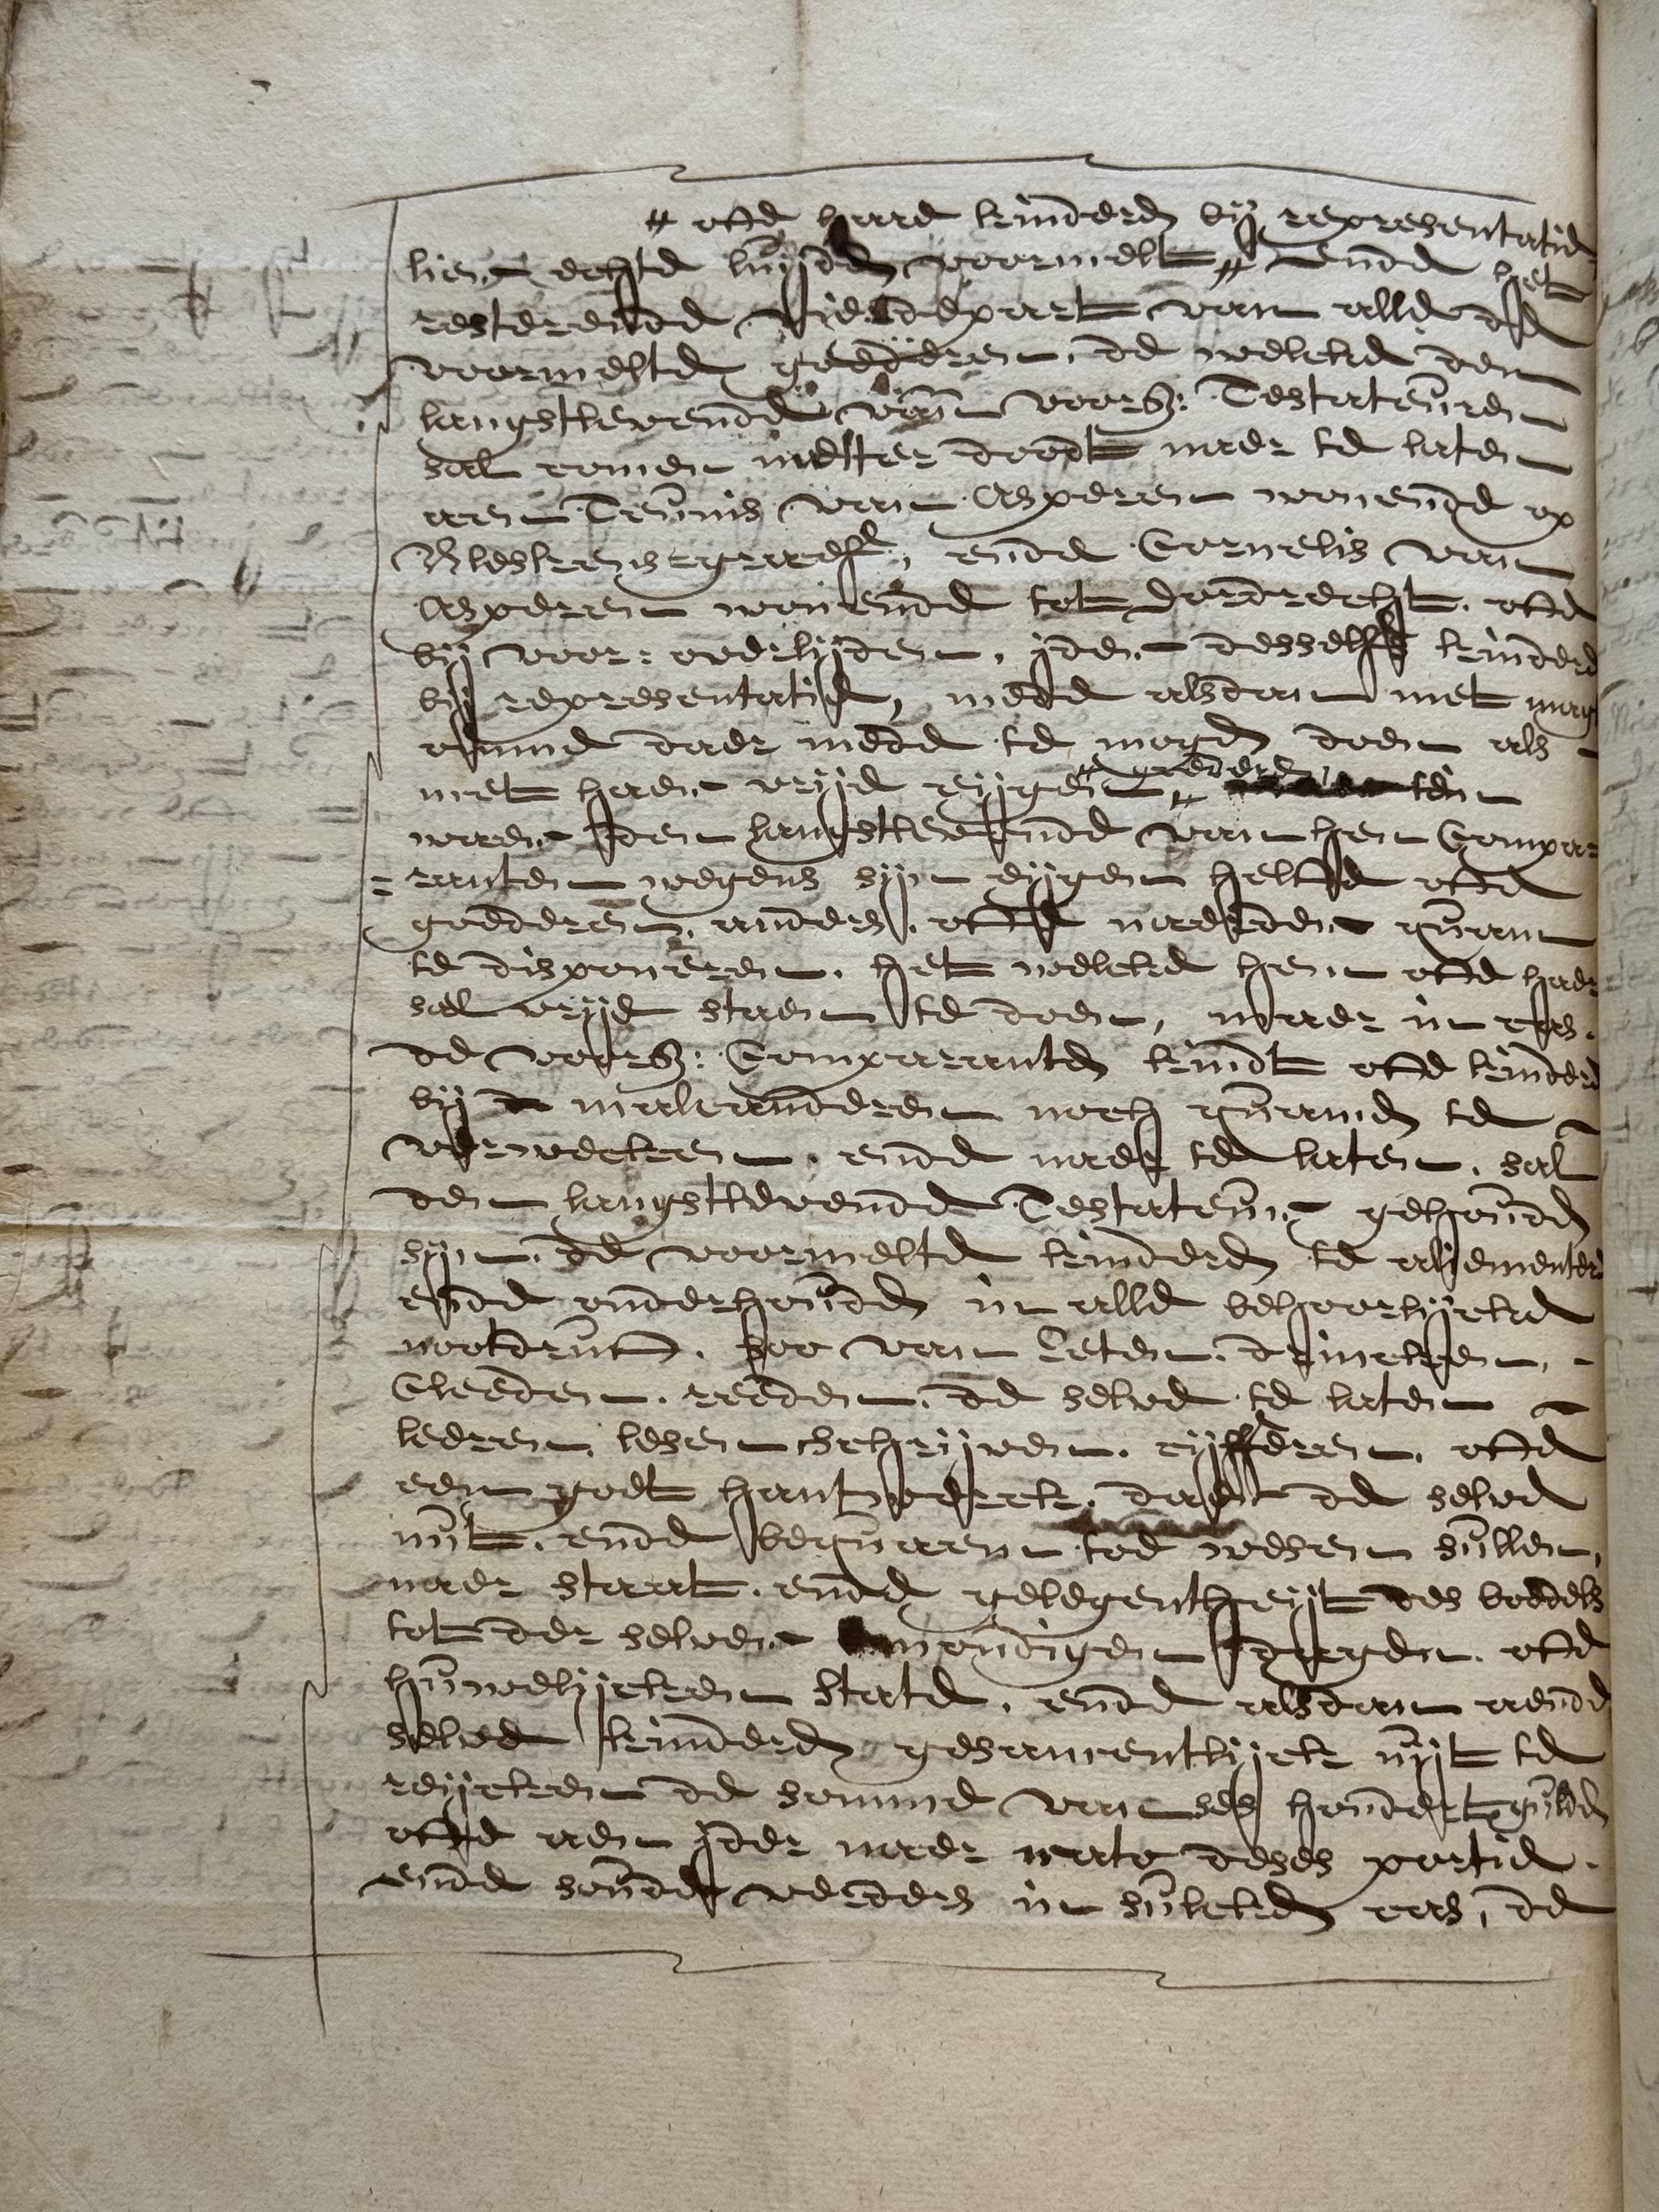 # ofte haere kinderen bij representatie
lien echte luijden voormelt # ende het
resterende vierdepart van alle de
voormelte goederen, de welcke den
langstlevende van voorsz: Testateuren
sal comen metter doodt naer te laten
aen Teunis van Asperen wonende op
Bleskensgraeff, ende Cornelis van
Asperen wonende tot Dordrecht, ofte
bij voor-overlijden, ider desselfs kinderen
bij representatie, mede alsdan met
omme daer mede te mogen doen als
met haer vrije eijgen # goederen, ten
waere den langstlevende van hen Compa-
= ranten wegens sijn eijgen helfte ofte
goederen, anders ofte naerder quam
te disponeren, het welcke hem ofte haer
sal vrije staen te doen, maer in cas
de voorsz: Comparanten kindt ofte kinderen
bij malcanderen noch quamen te
verwecken, ende naer te laten, sal
den langstlevende Testateur gehouden
sijn, de voormelte kinderen te alimenteren
ende onderhouden in alle behoorlijcke
nootdruft, soo van eten, drincken,
Cleeden, reeden, de selve te laten
leeren lesen schrijven, cijfferen, ofte
een goet hantwerck, daer de selve
nut, ende bequaem toe wesen sullen,
naer staat, ende gelegentheijt des boedels
tot der selver mondigen dagen, ofte
huwelijcken state, ende alsdan aende
selve kinderen gesamentlijck uijt te
reijcken de somme van ses hondert gulden
ofte aen ider naer rato deses portie.
ende sonder verders in sulcken cas, de